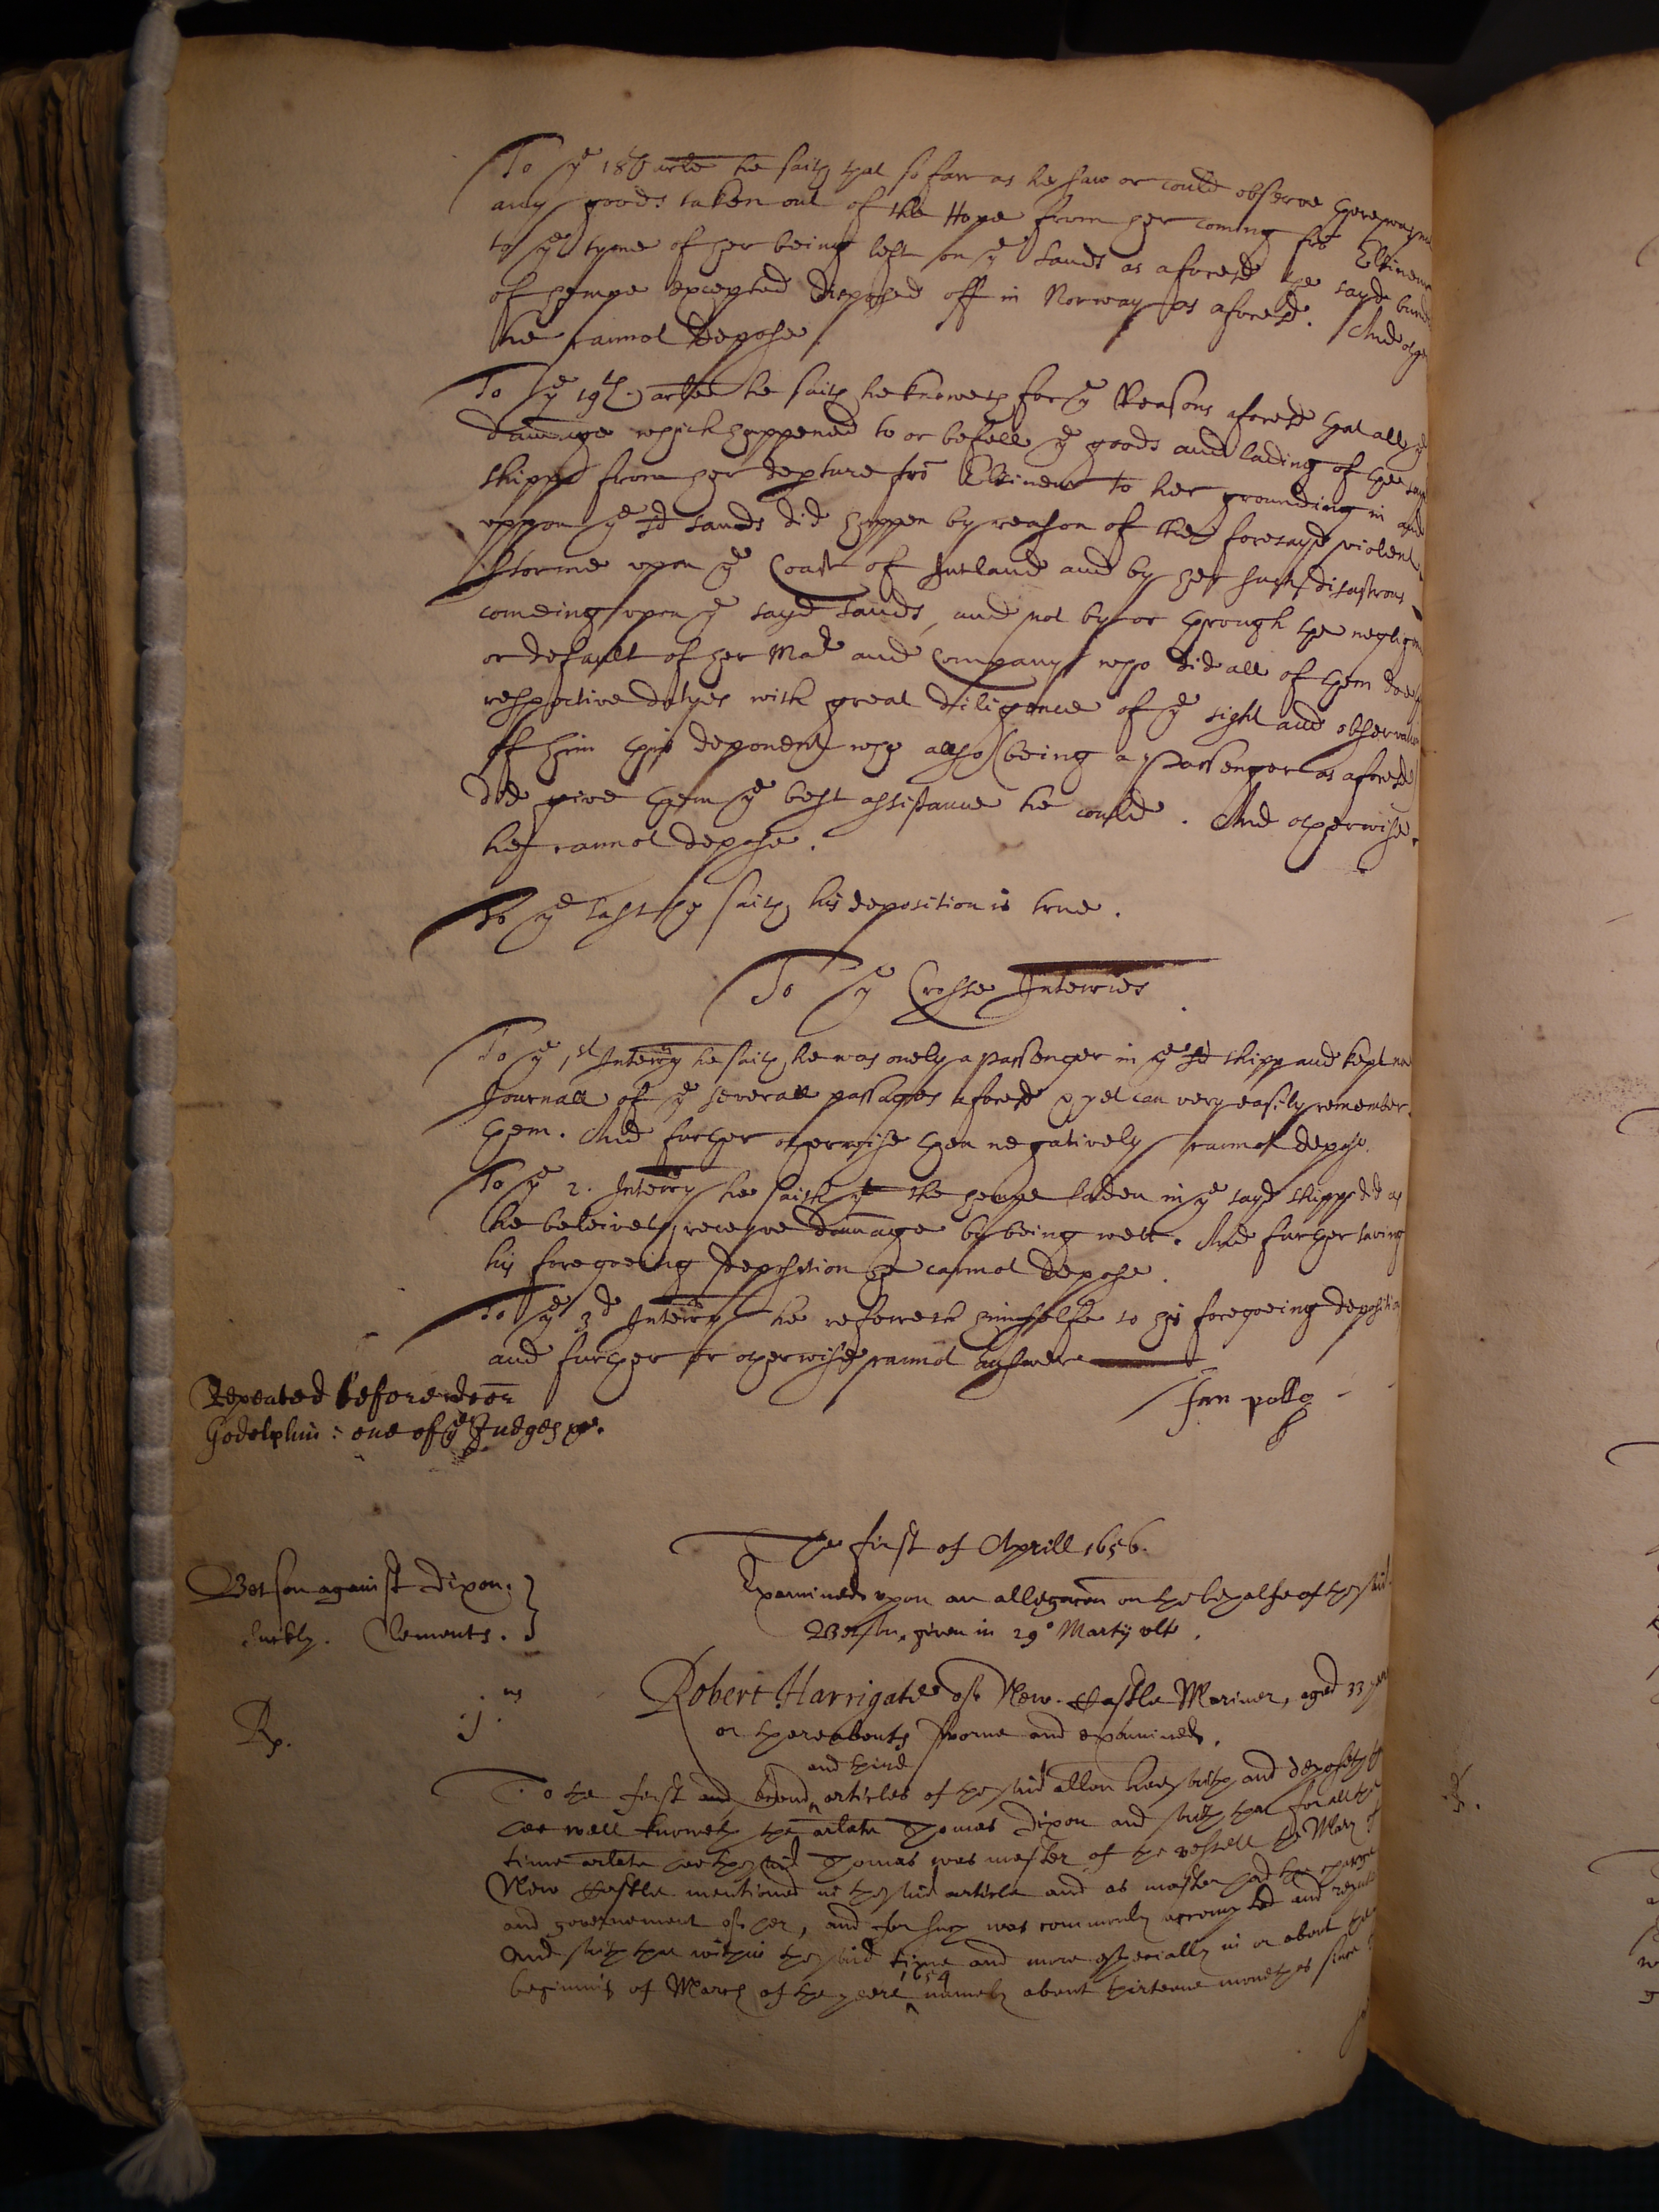 To ye 18th arte he saith that so farr as he saw or could observe there was no
any goods taken out of the Hope from her coming frõ Elbinene
to ye tyme of her being left on ye sands as aforesd the sayd bund
of hempe excepted disposed off in Norway as aforesd. And other
he cannot depose
To ye 19th. artle he saith he knoweth for ye Reasons aforesd that all ye
dammage which happened to or befell ye goods and lading of the sayd
shippe from her depture frõ Elbinene to her grounding in and
uppon ye sd sands did happen by reason of the foresayd violent
storme upon ye Coast of Jutland and by her such disastrous
comeing upon ye sayd sands, and not by or through the neglige
or default of her Mar and Company who did all of them doe
respective dutyes with great diligence of ye sight and observa
of him this deponent who also (being a passenger as aforesd)
did give them ye best assistance he could. And otherwise
he cannot depose.
To ye last he saith his deposition is true.
To ye Crosse Interries
To ye 1st Interry he saith he was onely a passenger in ye sd shipp and kept noe
Journall of ye severall passages aforesd yet can very easily remember
them. And further otherwise then negatively cannot depose.
To ye 2. Interry he saith yt the hempe laden in ye sayd shipp did as
he beleiveth receyve dammage by being wett. And further saving
his foregoeing deposition he cannot depose.
To ye 3d Interry he referreth himselfe to his foregoeing depositio
and further or otherwise cannot answere
Repeated before doer
Godolphin: one of ye Judges
Jan
The first of Aprill 1656.
Betson against Dixon.
Suckly. Clements.
Examined upon an allegacon on the behalfe of the said
Betson, given in 29o Martij ulto.
Rp. .j.us
Robert Harrigate of New-Castle Mariner, aged 33 yeares
or thereabouts sworne and examined.
and third
To the first and second articles of the said allon hee saith and deposeth th
hee well knoweth the arlate Thomas Dixon and saith that for all the
time arlate hee the said Thomas was master of the vessell the Mary of
New Castle mentioned in the said article and as master had the charge
and governement of her, and for such was commonly accompted and reputed
And saith that within the said time and more especially in or about the
1654
beginnig of March of the yeere namely about thirteene moneths since